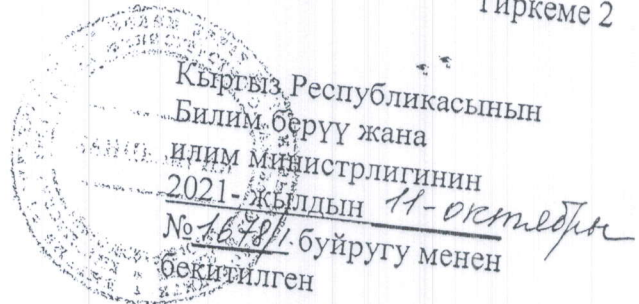 Тиркеме 2
Кыргыз Республикасынын
Билим берүү жана
илим министрлигинин
2021- жылдын 11-октябры
№1678/1 буйругу менен
бекитилген